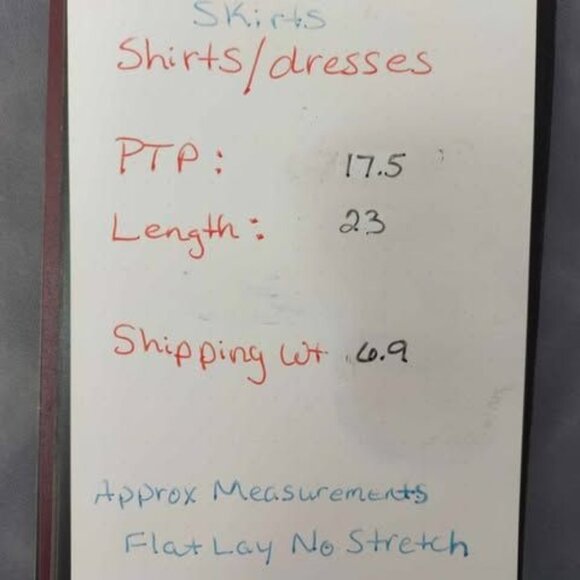 Skirts
Shirts/dresses
PTP: 17.5
Length: 23
Shipping Wt 6.9
Approx Measurements
Flat Lay No Stretch